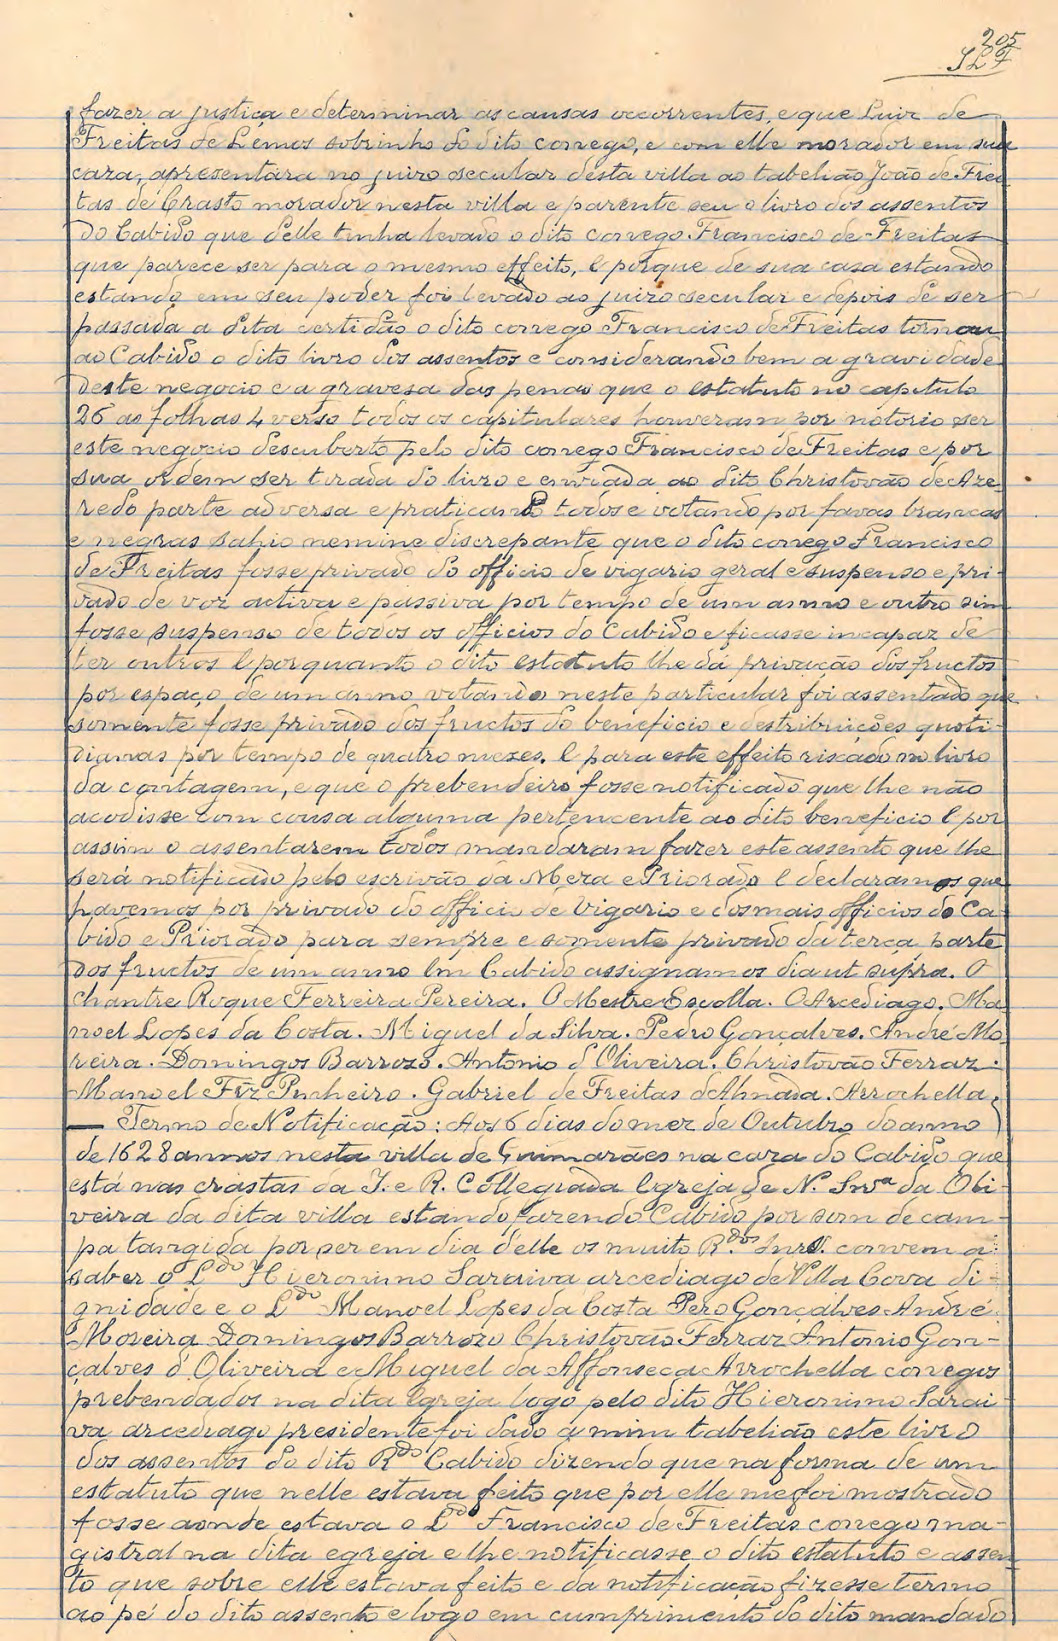 205
SLF
fazer a justiça e determinar as causas occorrentes, e que Luiz de
Freitas de Lemos sobrinho do dito conego, e com elle morador em sua
caza, apresentára no juizo secular desta villa ao tabelião João de Frei
tas de Crasto morador nesta villa e parente seu o livro dos assentos
do Cabido que delle tinha levado o dito conego Francisco de Freitas
que parece ser para o mesmo effeito, E porque de sua casa estando
estando em seu poder foi levado ao juizo secular e depois de ser
passada a dita certidão o dito conego Francisco de Freitas tornou
ao Cabido o dito livro dos assentos e considerando bem a gravidade
deste negocio e a graveza das penas que o estatuto no capitulo
26 as folhas 4 verso todos os capitulares houveram por notorio ser
este negocio descuberto pelo dito conego Francisco de Freitas e por
sua ordem ser tirada do livro e enviada ao dito Christovão de Aze-
redo parte adversa e praticando todos e votando por favas brancas
e negras sahio nemine discrepante que o dito conego Francisco
de Freitas fosse privado do officio de vigario geral e suspenso e pri-
vado de voz activa e passiva por tempo de um anno e outro sim
fosse suspenso de todos os officios do Cabido e ficasse incapaz de
ter outros E porquanto o dito estatuto lhe dá privação dos fructos
por espaço de um anno votando neste particular foi assentado que
somente fosse privado dos fructos do beneficio e destribuições quoti-
dianas por tempo de quatro mezes. E para este effeito riscado no livro
da contagem, e que o prebendeiro fosse notificado que lhe não
acodisse com cousa alguma pertencente ao dito beneficio E por
assim o assentarem todos mandaram fazer este assento que lhe
será notificado pelo escrivão da Meza e Priorado E declaramos que
havemos por privado do officio de Vigario e dos mais officios do Ca-
bido e Priorado para sempre e somente privado da terça parte
dos fructos de um anno Em Cabido assignamos dia ut supra. O
chantre Roque Ferreira Pereira. O Mestre Escolla. O Arcediago. Ma
noel Lopes da Costa. Miguel da Silva. Pedro Gonçalves. André Mo
reira. Domingos Barrozo. Antonio d'Oliveira. Christovão Ferraz.
Manoel Frz Pinheiro. Gabriel de Freitas d'Almada. Arrochella.
— Termo de Notificação: Aos 6 dias do mez de Outubro do anno
de 1628 annos nesta villa de Guimarães na caza do Cabido que
está nas crastas da I. e R. Collegiada Egreja de N. Snrª da Oli-
veira da dita villa estando fazendo Cabido por som de cam-
pa tangida por ser em dia d'elle os muito R.dos Snrs. convem a
saber o L.do Hieronimo Saraiva arcediago de Villa Cova di-
gnidade e o L.do Manoel Lopes da Costa Pero Gonçalves André
Moreira Domingos Barrozo Christovão Ferraz Antonio Gon-
çalves d'Oliveira e Miguel da Affonseca Arrochella conegos
prebendados na dita Egreja logo pelo dito Hieronimo Sarai
va arcediago presidente foi dado a mim tabelião este livro
dos assentos do dito R.do Cabido dizendo que na forma de um
estatuto que nelle estava feito que por elle me foi mostrado
fosse aonde estava o L.do Francisco de Freitas conego ma-
gistral na dita egreja e lhe notificasse o dito estatuto e assen
to que sobre elle estava feito e da notificação fizesse termo
ao pé do dito assento e logo em cumprimento do dito mandado